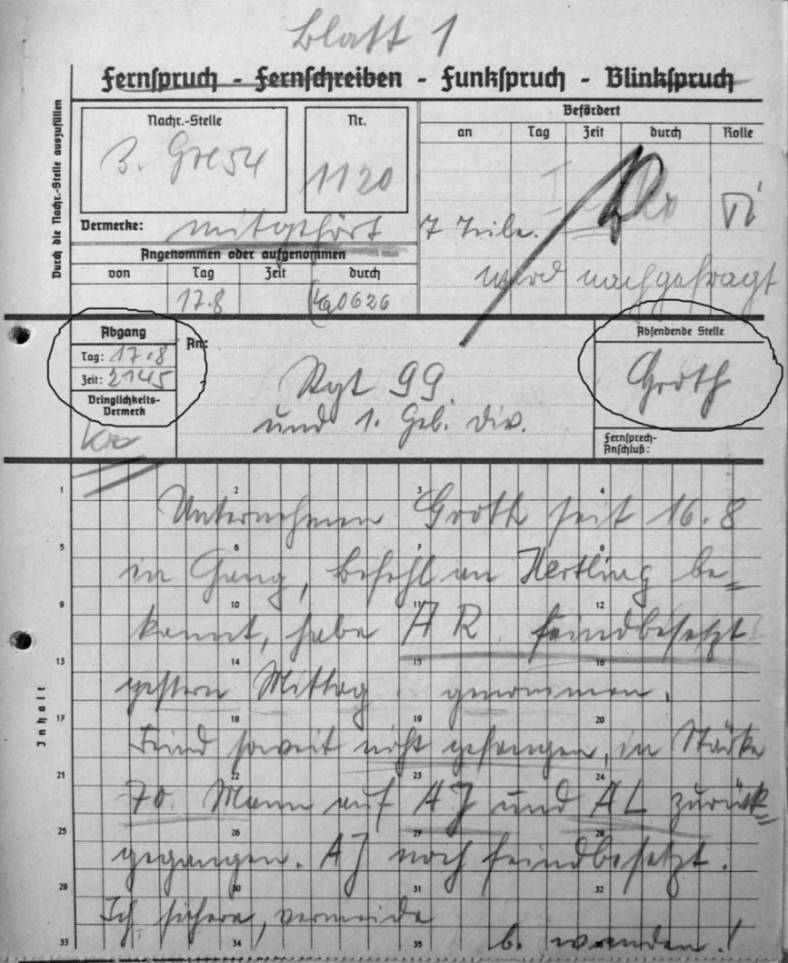 Blatt 1
Fernspruch - Fernschreiben - Funkspruch - Blinkspruch
Durch die Nachr.-Stelle auszufüllen
Nachr.-Stelle
Nr.
Befördert
an Tag Zeit durch Rolle
1120
Vermerke: mitgehört 7 Teile.
Angenommen oder aufgenommen
von Tag Zeit durch
wird nachgefragt
17.8 0626
Abgang
Tag: 17.8
Zeit: 2145
Dringlichkeits-
Vermerk
An:
Rgt 99
und 1. Geb. Div.
Absendende Stelle
Groth
Fernsprech-
Anschluß:
Inhalt
1 2 3 4
Unternehmen Groth seit 16.8
5 6 7 8
in Gang, Befehl an Hertling be=
9 10 11 12
kannt, habe AR feindbesetzt
13 14 15 16
gestern Mittag genommen.
17 18 19 20
Feind soweit nicht gefangen, in Stärke
21 22 23 24
70 Mann auf AJ und AL zurück=
25 26 27 28
gegangen. AJ noch feindbesetzt.
29 30 31 32
Ich sichere, vermeide
33 34 35
b. wenden!